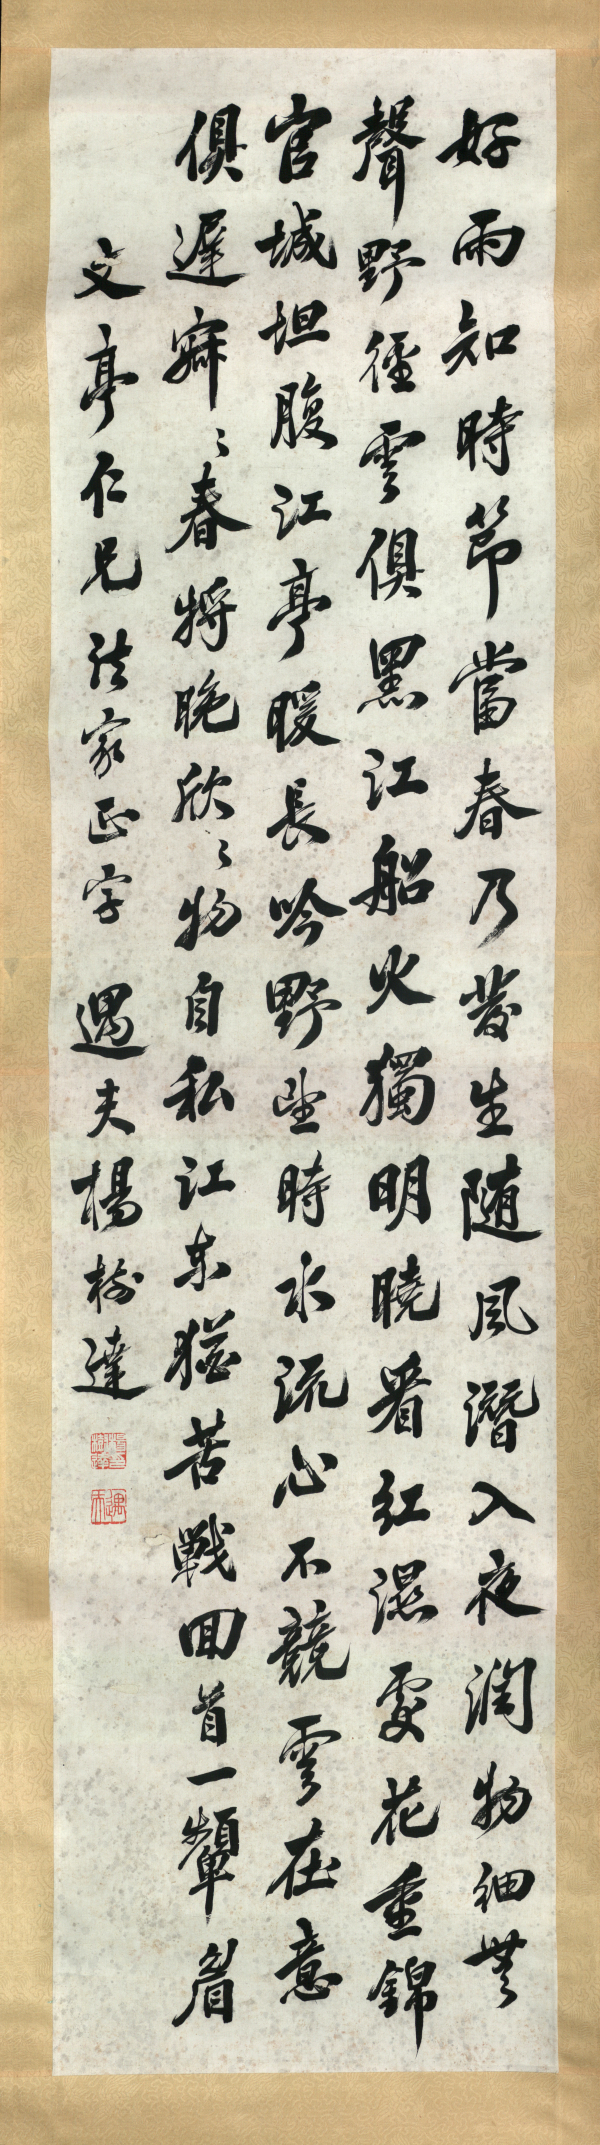 好雨知時節當春乃發生隨風潛入夜潤物細無
聲野徑雲俱黑江船火獨明曉看紅濕處花重錦
官城坦腹江亭暖長吟野望時水流心不競雲在意
俱遲寂〻春將晚欣〻物自私江東猶苦戰回首一顰眉
文亭仁兄法家正字 遇夫楊樹達
楊樹達
遇夫